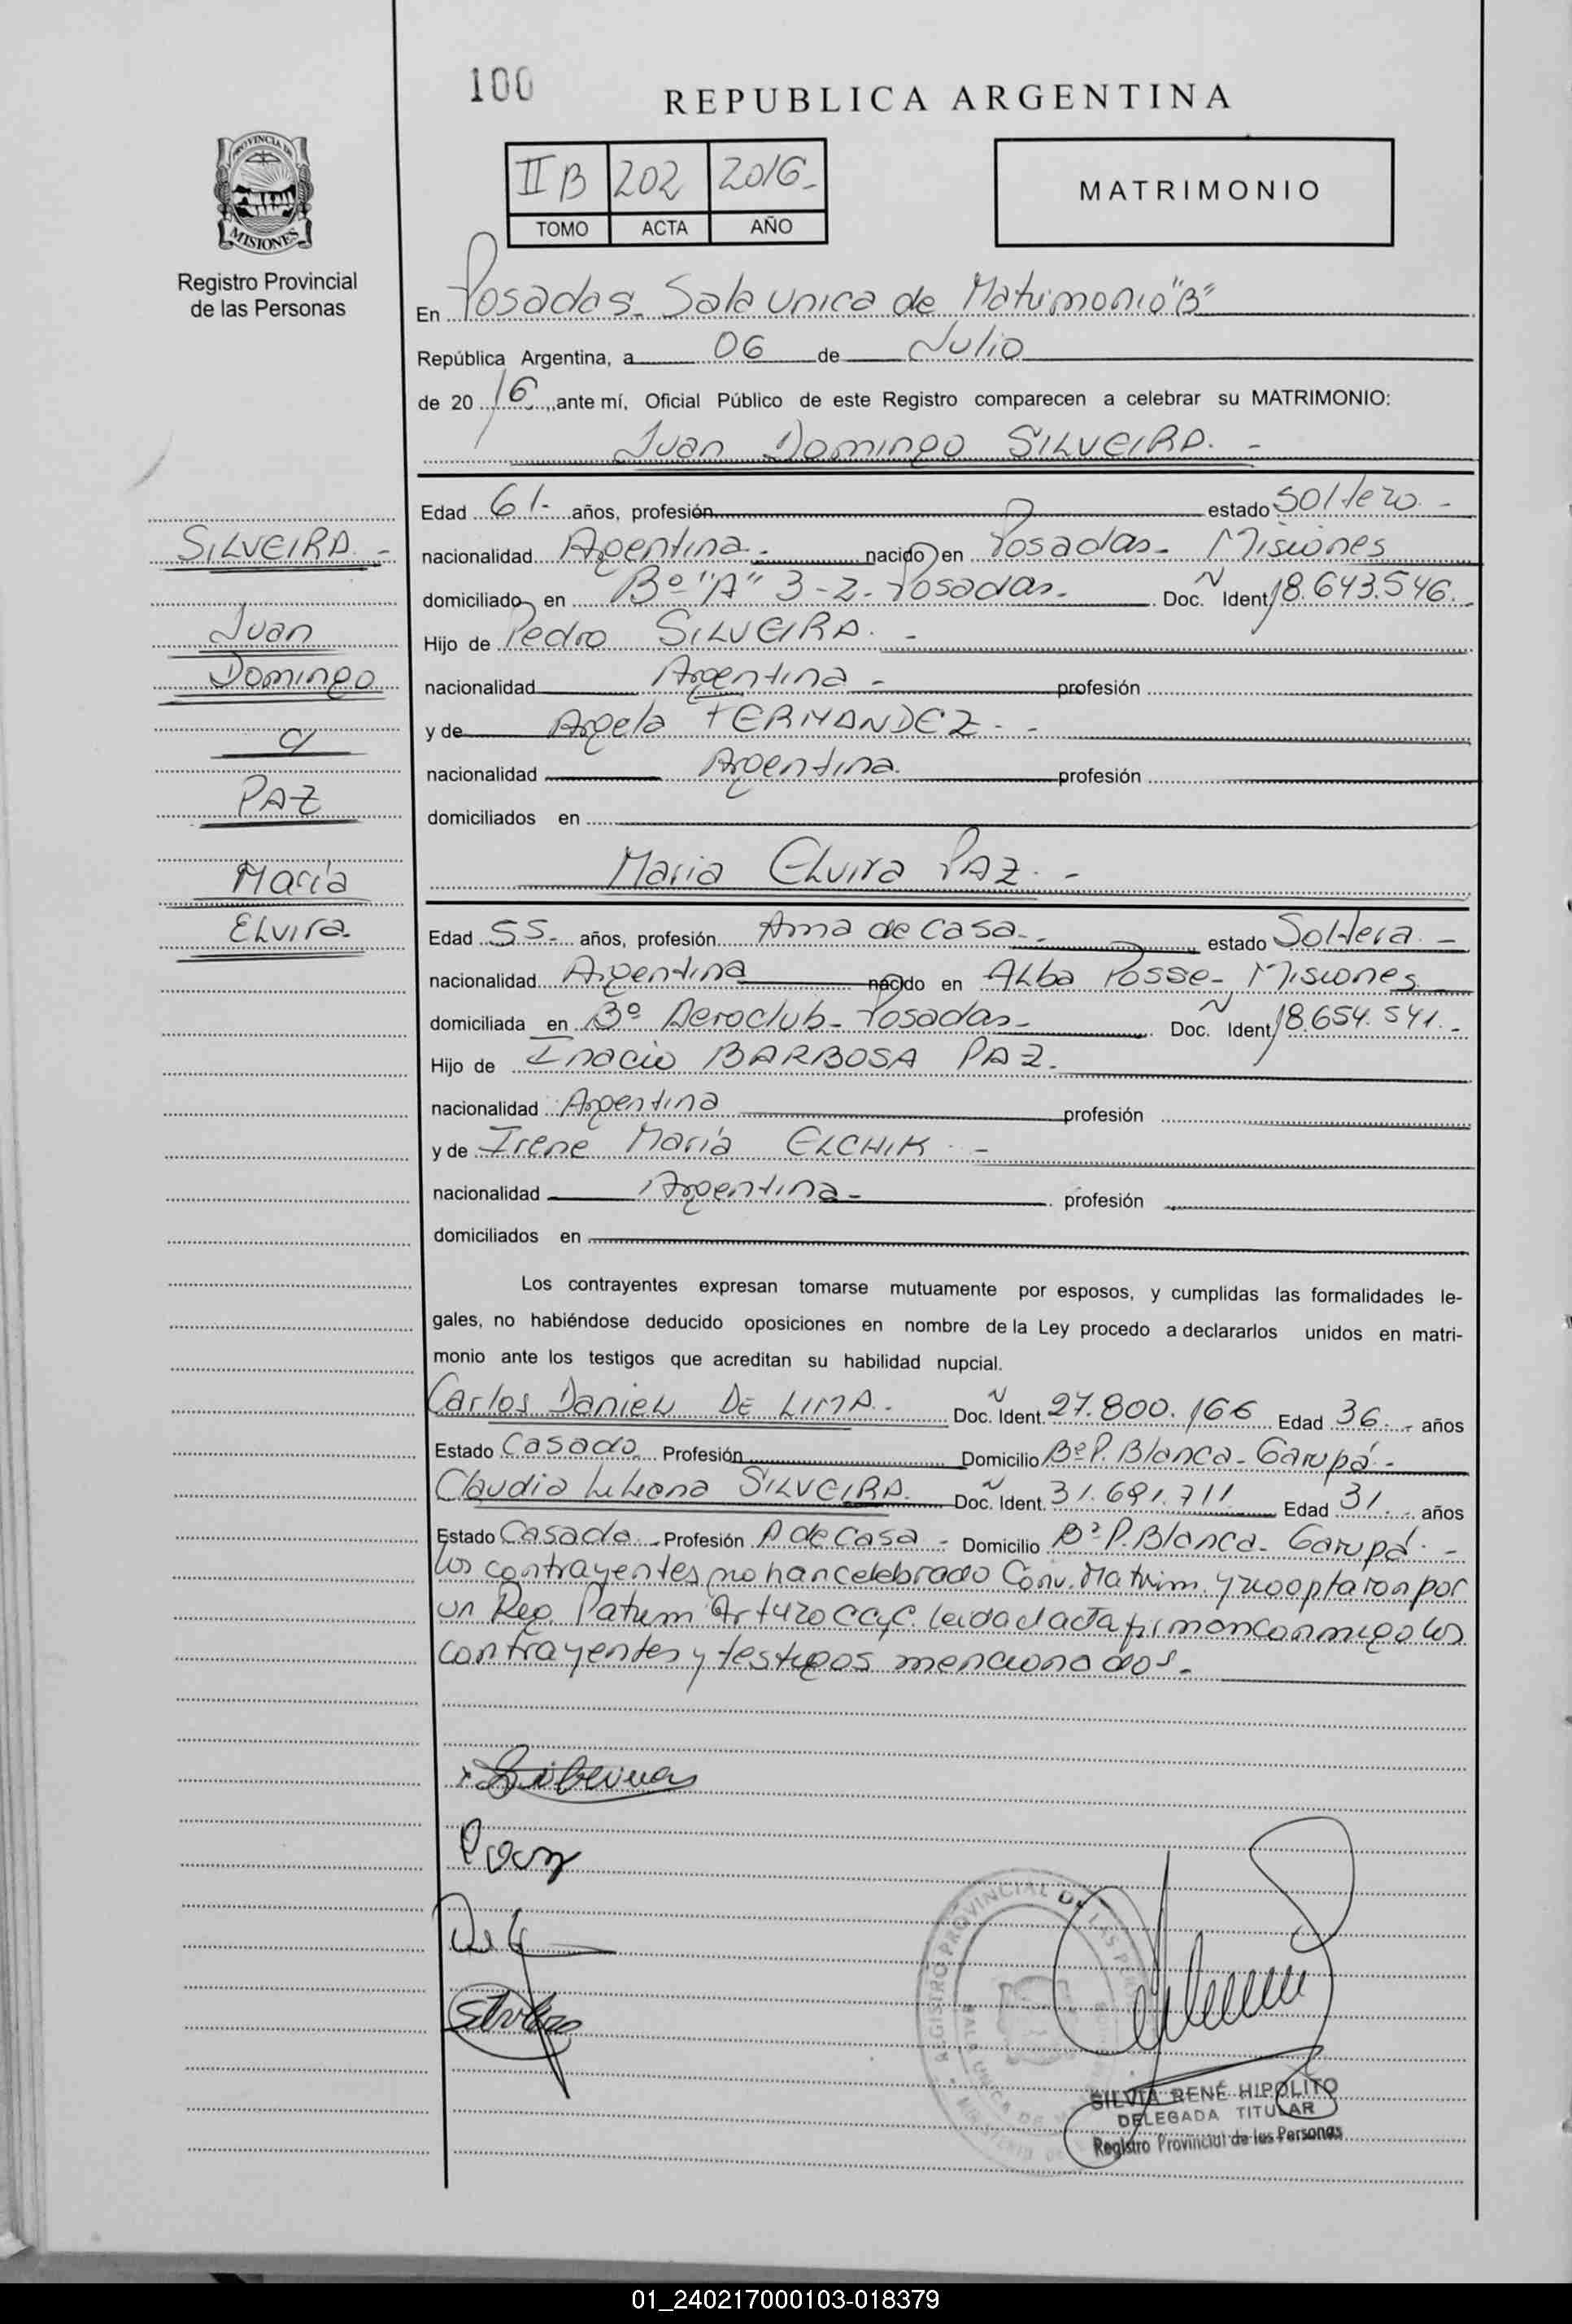 100
REPUBLICA ARGENTINA
PROVINCIA DE
MISIONES
Registro Provincial
de las Personas
II B 202 2016-
TOMO ACTA AÑO
MATRIMONIO
En Posadas- Sala Unica de Matrimonio "B"
República Argentina, a 06 de Julio
de 20 16, ante mí, Oficial Público de este Registro comparecen a celebrar su MATRIMONIO:
Juan Domingo SILVEIRA. -
Edad 61- años, profesión estado Soltero -
SILVEIRA. -
nacionalidad Argentina - nacido en Posadas- Misiones
domiciliado en Bº "A" 3-2- Posadas- Doc. Ident 18.643.546. -
Juan
Hijo de Pedro SILVEIRA. -
Domingo
nacionalidad Argentina - profesión
c/
y de Angela FERNANDEZ - -
nacionalidad Argentina. profesión
PAZ
domiciliados en
María
Maria Elvira PAZ. -
Elvira.
Edad 55- años, profesión Ama de casa- - estado Soltera. -
nacionalidad Argentina nacido en Alba Posse- Misiones
domiciliada en Bº Aeroclub- Posadas- Doc. Ident 18.654.541. -
Hijo de Inacio BARBOSA PAZ.
nacionalidad Argentina profesión
y de Irene María ELCHIK - -
nacionalidad Argentina- profesión
domiciliados en
Los contrayentes expresan tomarse mutuamente por esposos, y cumplidas las formalidades le-
gales, no habiéndose deducido oposiciones en nombre de la Ley procedo a declararlos unidos en matri-
monio ante los testigos que acreditan su habilidad nupcial.
Carlos Daniel DE LIMA. Doc. Ident. 27.800.166 Edad 36- años
Estado Casado Profesión Domicilio Bº P. Blanca- Garupá -
Claudia Liliana SILVEIRA. Doc. Ident. 31.691.711 Edad 31- años
Estado Casada - Profesión A de casa - Domicilio Bº P. Blanca- Garupá. -
los contrayentes no han celebrado Conv. Matrim. y no optaron por
un Reg. Patrim Art 420 CCyC. leida el acta firman conmigo los
contrayentes y testigos mencionados.
Paz
REGISTRO PROVINCIAL DE LAS
SILVIA RENÉ HIPOLITO
DELEGADA TITULAR
Registro Provincial de las Personas
01_240217000103-018379